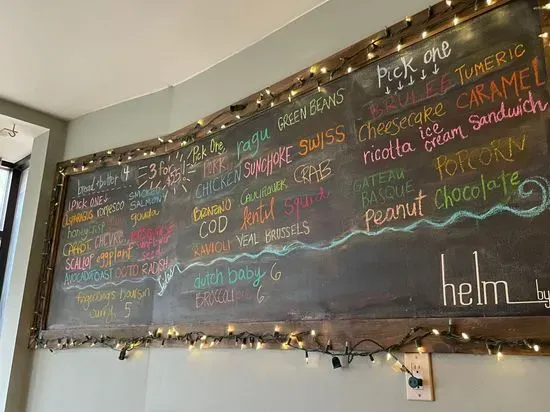 bread+butter 4
= 3 for
$51
pick one
honeycrisp
CARROT CHEVRE
SCALLOP eggplant
AVOCADO TOAST OCTO RADISH
SMOKED
SALMON
gouda
sunflower
5
Pick One
PORK ragu GREEN BEANS
CHICKEN SUNCHOKE SWISS
BRANZINO CAULIFLOWER CRAB
COD lentil squid
RAVIOLI VEAL BRUSSELS
dutch baby 6
BROCCOLI 6
pick one
BRULEE TUMERIC
Cheesecake CARAMEL
ricotta ice cream sandwich
GATEAU POPCORN
BASQUE
Peanut chocolate
helm by